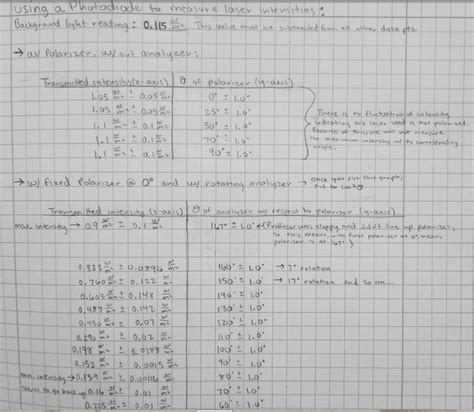 using a Photodiode to measure laser intensities:
Background light reading: 0.115 W/m² This value must be subtracted from all other data pts.
→ w/ Polarizer, w/out analyzer:
Transmitted intensity (x-axis) θ of polarizer (y-axis)
1.05 W/m² ± 0.05 W/m² 0° ± 1.0°
1.05 W/m² ± 0.05 W/m² 25° ± 1.0°
1.1 W/m² ± 0.1 W/m² 50° ± 1.0°
1.1 W/m² ± 0.1 W/m² 70° ± 1.0°
1.1 W/m² ± 0.1 W/m² 90° ± 1.0°
There is no fluctuation of intensity
indicating the laser used is not polarized.
Because of this, we will not measure
the maximum intensity w/ its corresponding
angle.
→ w/ fixed Polarizer @ 0° and w/ rotating analyzer → Once you plot this graph,
fit to cos²θ
Transmitted intensity (x-axis) θ of analyzer w/ respect to polarizer (y-axis)
max. intensity → 0.9 W/m² ± 0.1 W/m² 167° ± 1.0° ← (Professor was sloppy and didn't line up polarizer,
so this means, with first polarizer at 0°, mean
polarizer is at 167°)
0.835 W/m² ± 0.0896 W/m² 160° ± 1.0° → 7° rotation
0.760 W/m² ± 0.122 W/m² 150° ± 1.0° → 17° rotation and so on...
0.603 W/m² ± 0.148 W/m² 140° ± 1.0°
0.487 W/m² ± 0.142 W/m² 130° ± 1.0°
0.430 W/m² ± 0.07 W/m² 120° ± 1.0°
0.290 W/m² ± 0.02 W/m² 110° ± 1.0°
0.198 W/m² ± 0.0189 W/m² 100° ± 1.0°
0.152 W/m² ± 0.0015 W/m² 90° ± 1.0°
min. intensity → 0.139 W/m² ± 0.00116 W/m² 80° ± 1.0°
starts to go back up 0.16 W/m² ± 0.01 W/m² 70° ± 1.0°
0.225 W/m² ± 0.01 W/m² 60° ± 1.0°